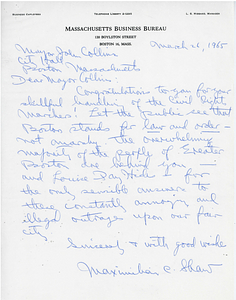 MASSACHUSETTS BUSINESS BUREAU
126 BOYLSTON STREET
BOSTON 16, MASS.
March 26, 1965
Mayor John Collins
City Hall
Boston, Massachusetts
Dear Mayor Collins:
Congratulations to you for your
skillful handling of the Civil Right
Marches! Let the public see that
Boston stands for law and order —
not anarchy. The overwhelming
majority of the people of Greater
Boston are behind you —
and Louise Day Hicks for
the only sensible answers to
these constantly annoying and
illegal outrages upon our fair
city.
Sincerely & with good wishes
Maximilian C. Shaw